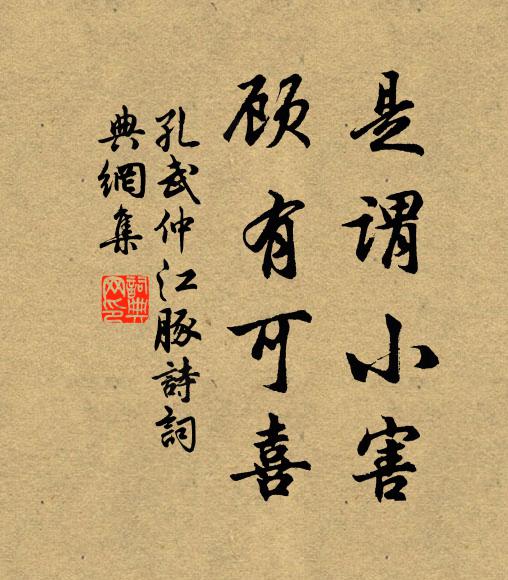 是谓小害
顾有可喜
孔武仲江豚詩詞
典網集
詞典
网印